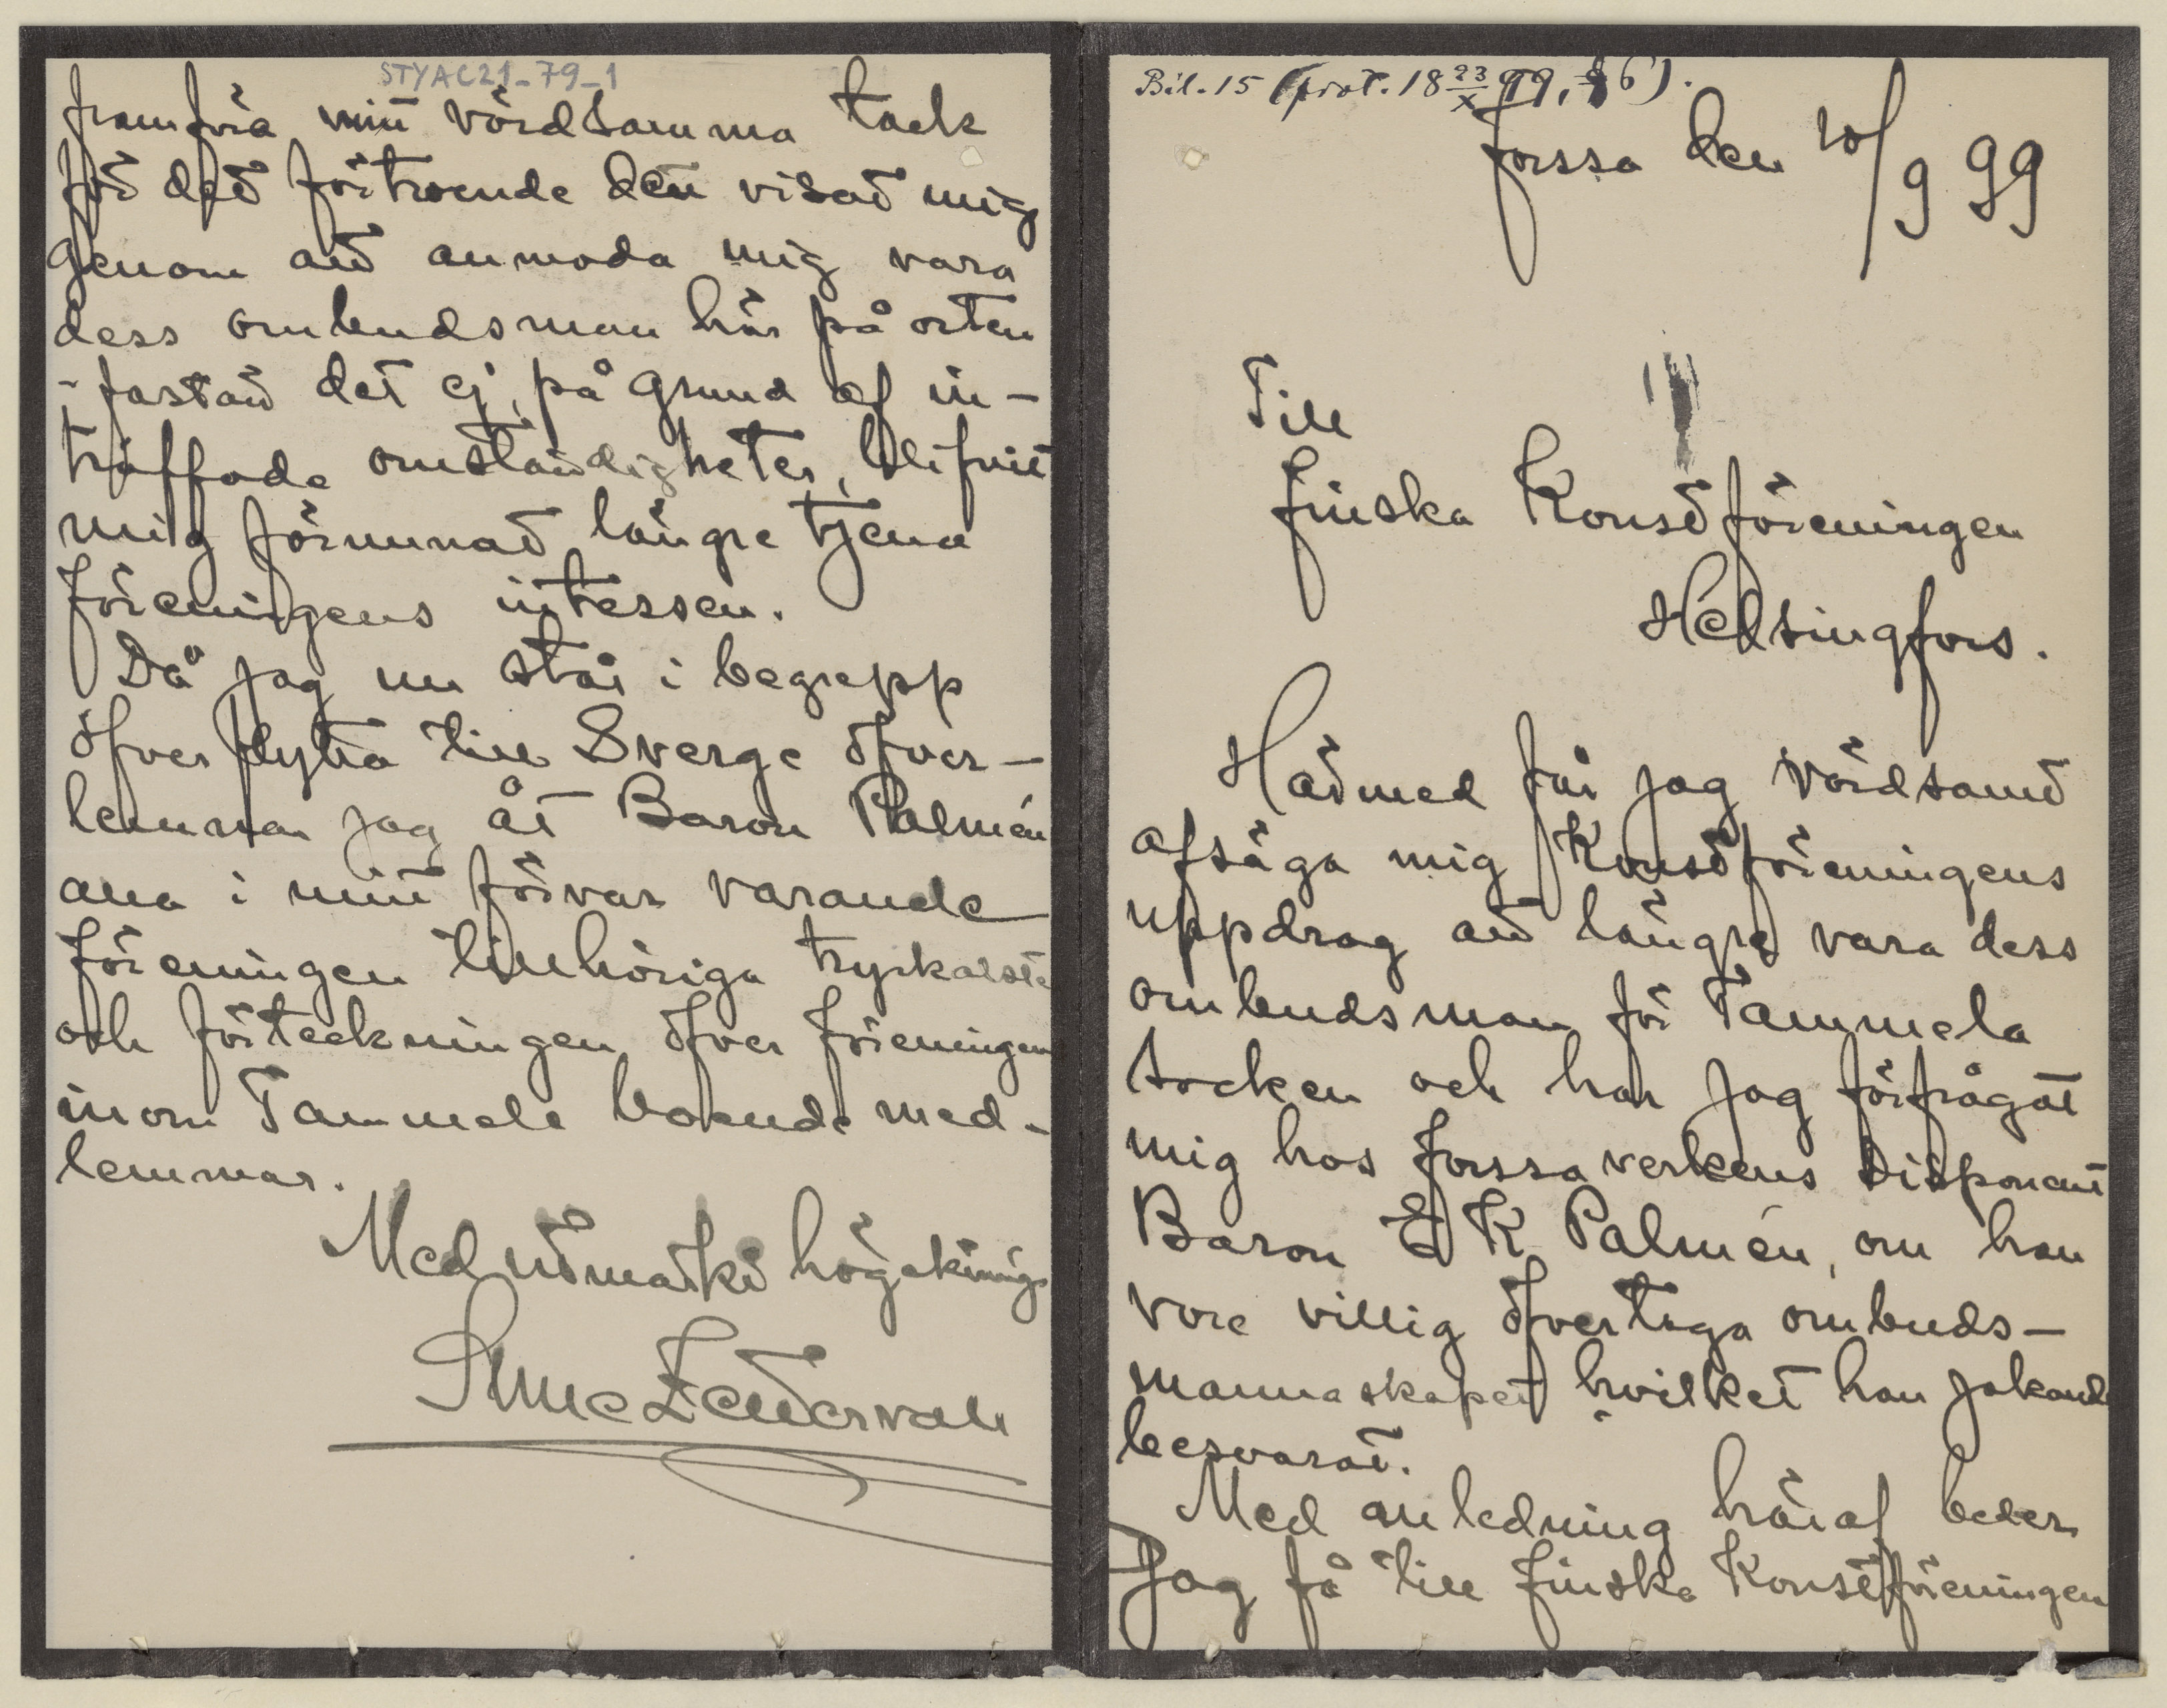 Bil. 15 (prot. 18 23/X 99, § 6).
Forssa den 10/9 99
Till
Finska Konstföreningen
Helsingfors.
Härmed får jag vördsamt
afsäga mig Konstföreningens
uppdrag att längre vara dess
ombudsman för Tammela
socken och har jag förfrågat
mig hos Forssa verkens Disponent
Baron E K Palmén, om han
vore villig öfvertaga ombuds-
mannaskapet hvilket han jakande
besvarat.
Med anledning häraf beder
jag få till Finska Konstföreningen
STYAC21-79-1
framföra mitt vördsamma tack
för det förtroende den visat mig
genom att anmoda mig vara
dess ombudsman här på orten
- fastän det ej, på grund af in-
träffade omständigheter, blifvit
mig förunnat längre tjena
föreningens intressen.
Då jag nu står i begrepp
öfverflytta till Sverge öfver-
lemnar jag åt Baron Palmén
alla i mitt förvar varande
föreningen tillhöriga tryckalster
och förteckningen öfver föreningens
inom Tammela boende med-
lemmar.
Med utmärkt högaktning
Sune Zetterwall